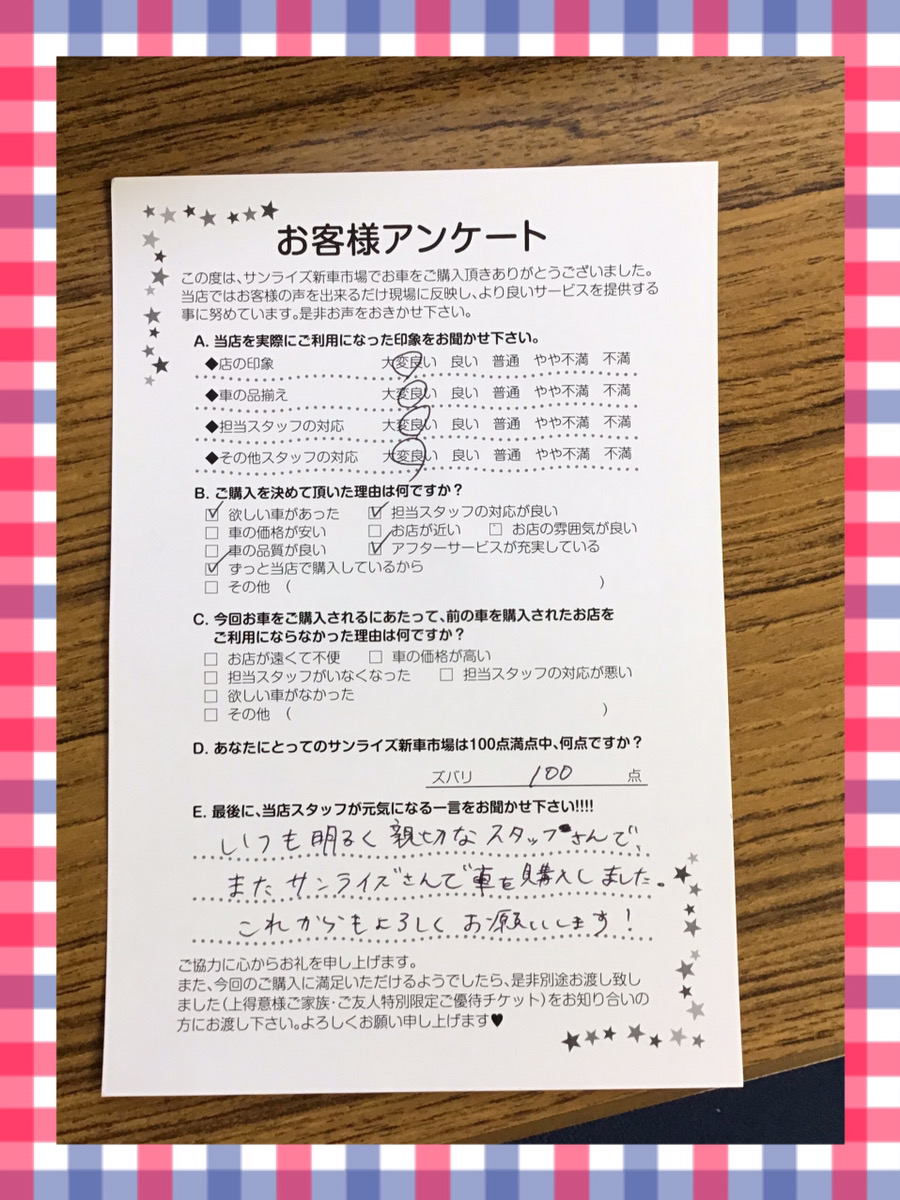 お客様アンケート
この度は、サンライズ新車市場でお車をご購入頂きありがとうございました。
当店ではお客様の声を出来るだけ現場に反映し、より良いサービスを提供する
事に努めています。是非お声をおきかせ下さい。
A. 当店を実際にご利用になった印象をお聞かせ下さい。
◆店の印象 大変良い 良い 普通 やや不満 不満
◆車の品揃え 大変良い 良い 普通 やや不満 不満
◆担当スタッフの対応 大変良い 良い 普通 やや不満 不満
◆その他スタッフの対応 大変良い 良い 普通 やや不満 不満
B. ご購入を決めて頂いた理由は何ですか？
☑ 欲しい車があった ☑ 担当スタッフの対応が良い
□ 車の価格が安い □ お店が近い □ お店の雰囲気が良い
□ 車の品質が良い ☑ アフターサービスが充実している
☑ ずっと当店で購入しているから
□ その他 （ ）
C. 今回お車をご購入されるにあたって、前の車を購入されたお店を
ご利用にならなかった理由は何ですか？
□ お店が遠くて不便 □ 車の価格が高い
□ 担当スタッフがいなくなった □ 担当スタッフの対応が悪い
□ 欲しい車がなかった
□ その他 （ ）
D. あなたにとってのサンライズ新車市場は100点満点中、何点ですか？
ズバリ 100 点
E. 最後に、当店スタッフが元気になる一言をお聞かせ下さい!!!!
いつも明るく親切なスタッフさんで、
またサンライズさんで車を購入しました。
これからもよろしくお願いします！
ご協力に心からお礼を申し上げます。
また、今回のご購入に満足いただけるようでしたら、是非別途お渡し致し
ました（上得意様ご家族・ご友人特別限定ご優待チケット）をお知り合いの
方にお渡し下さい。よろしくお願い申し上げます♥